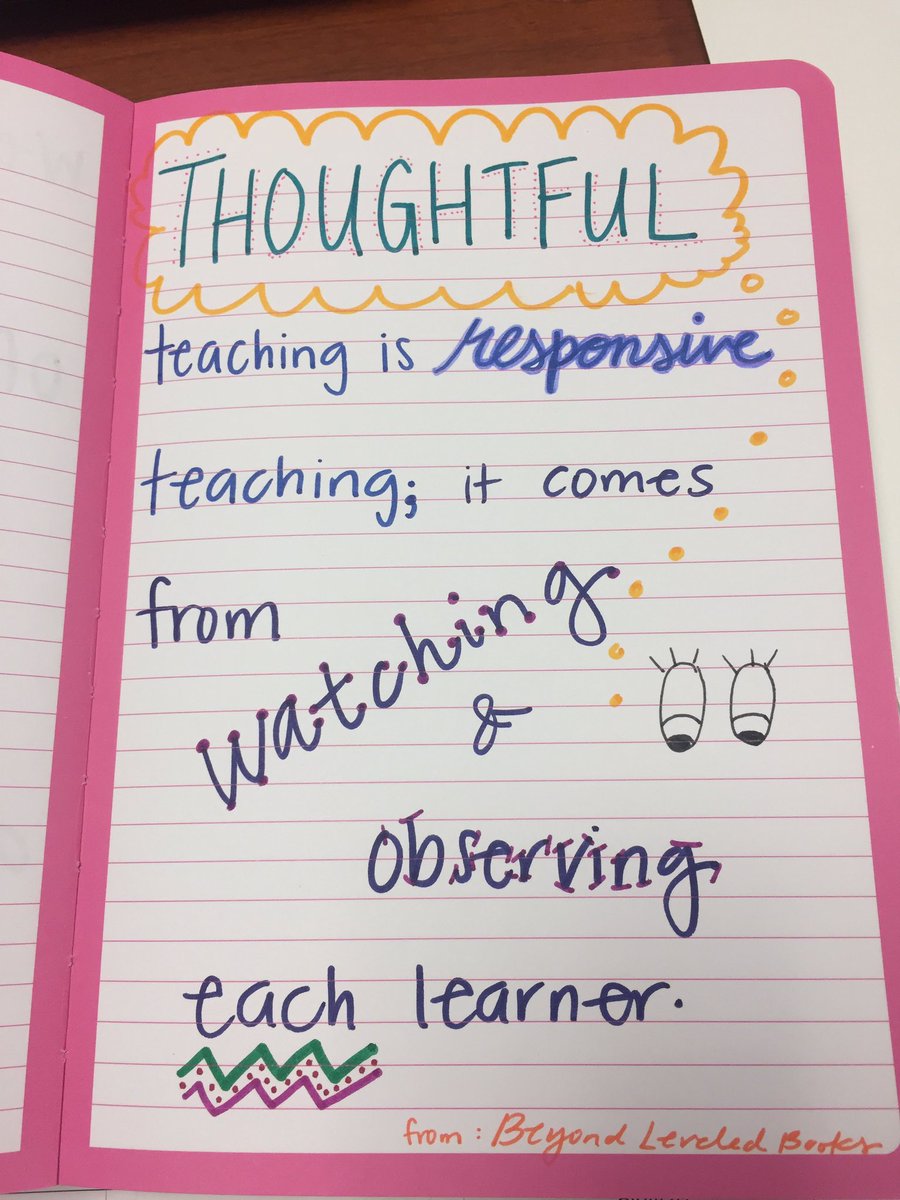 THOUGHTFUL
teaching is responsive
teaching; it comes
from watching
&
observing
each learner.
from: Beyond Leveled Books